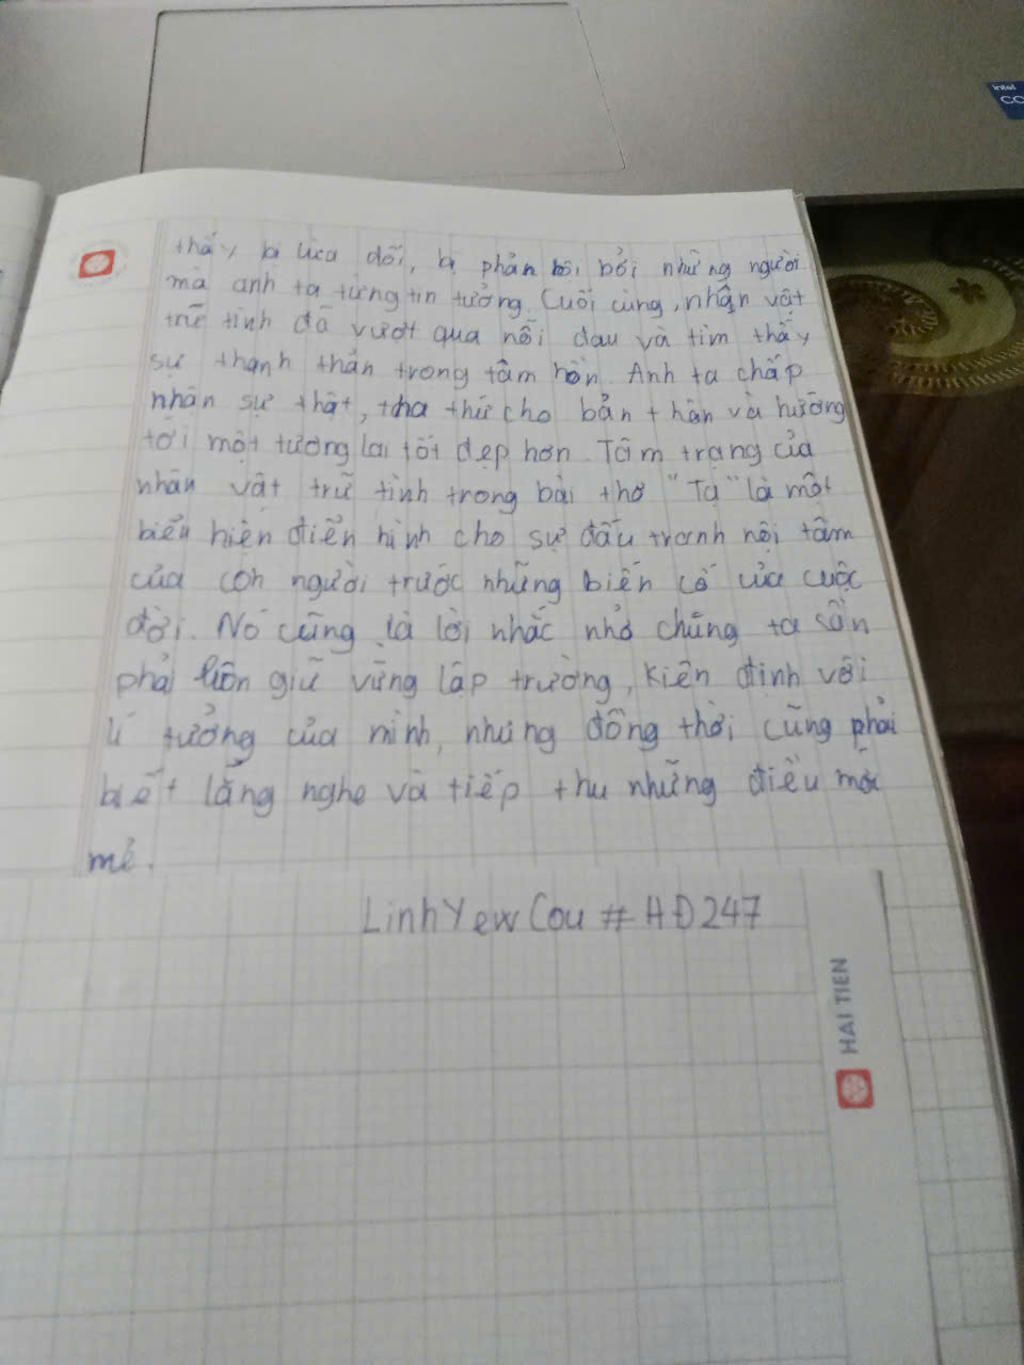 thấy bị lừa dối, bị phản bội bởi những người
mà anh ta từng tin tưởng. Cuối cùng, nhận vật
trữ tình đã vượt qua nỗi đau và tìm thấy
sự thanh thản trong tâm hồn. Anh ta chấp
nhận sự thật, tha thứ cho bản thân và hướng
tới một tương lai tốt đẹp hơn. Tâm trạng của
nhân vật trữ tình trong bài thơ "Tạ" là một
biểu hiện điển hình cho sự đấu tranh nội tâm
của con người trước những biến cố của cuộc
đời. Nó cũng là lời nhắc nhở chúng ta
phải luôn giữ vững lập trường, kiên định với
lí tưởng của mình, nhưng đồng thời cũng phải
biết lắng nghe và tiếp thu những điều mới
mẻ.
LinhYewCou # HĐ247
HAI TIEN
intel